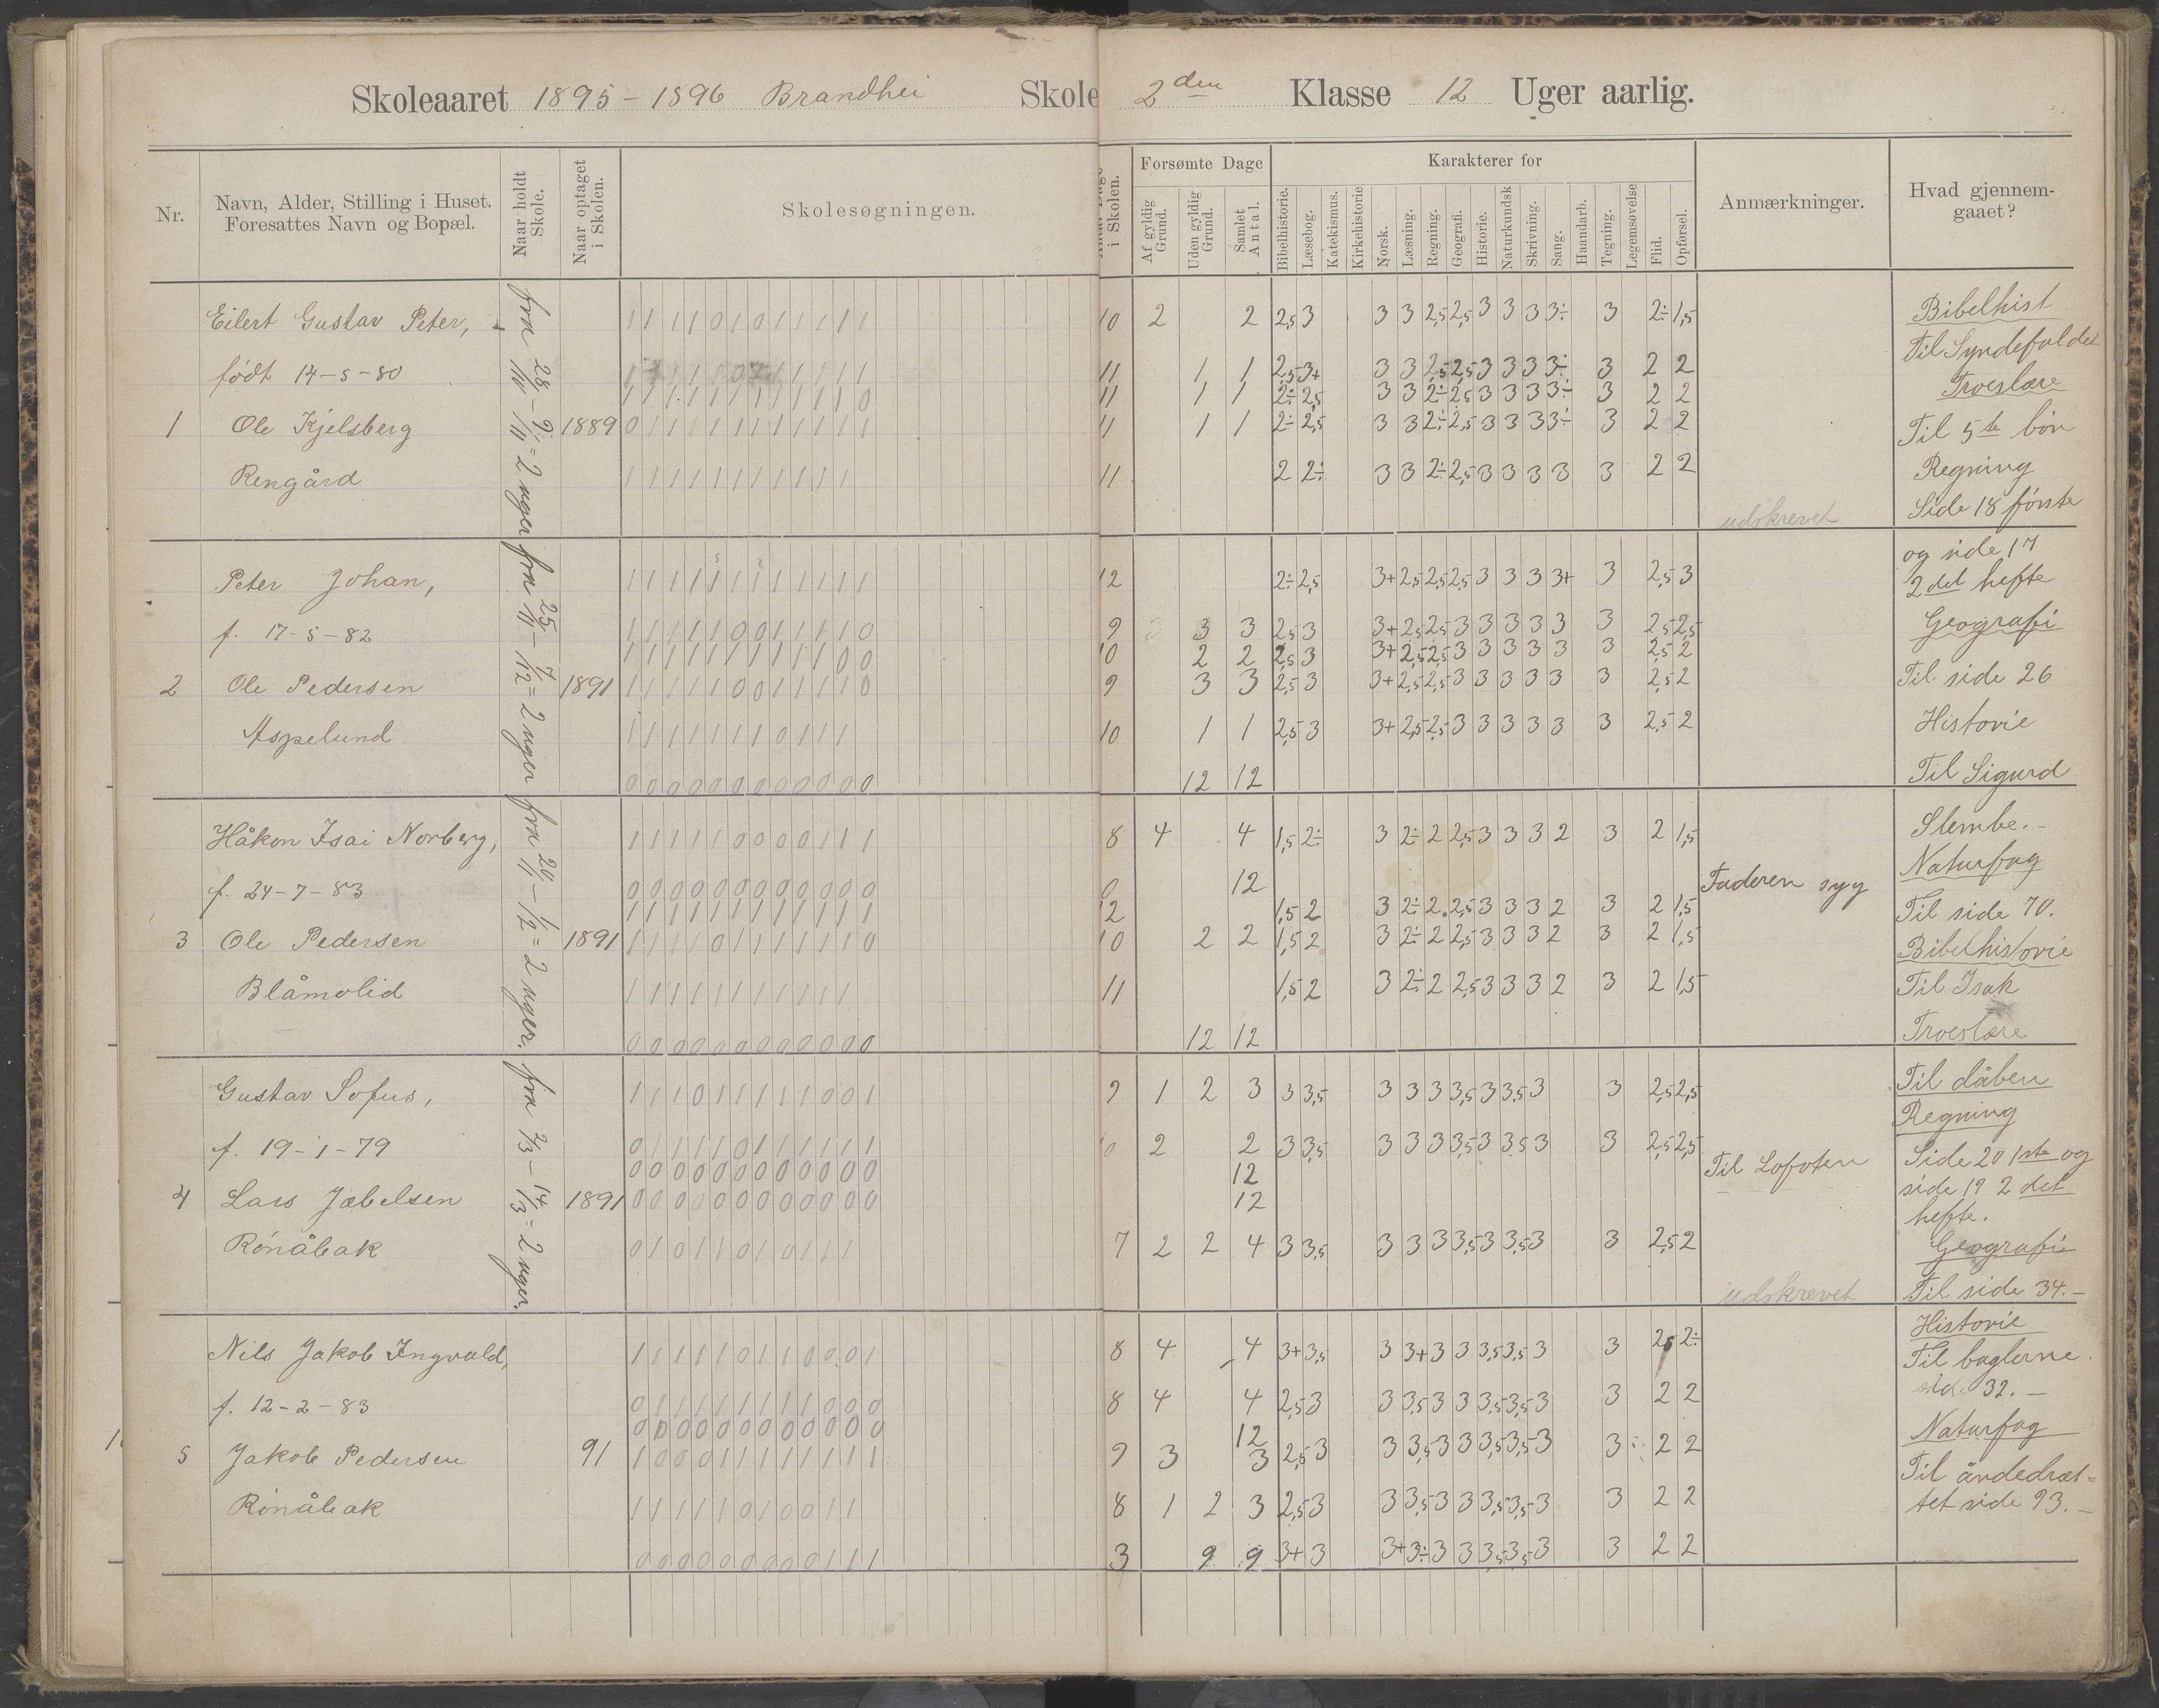 Skoleaaret 1895-1896 Brandhei Skole 2den Klasse 12 Uger aarlig.
Nr.
Navn, Alder, Stilling i Huset.
Foresattes Navn og Bopæl.
Naar holdt
Skole.
Naar optaget
i Skolen.
Skolesøgningen.
i Skolen.
Forsømte Dage
Af gyldig
Grund.
Uden gyldig
Grund.
Samlet
Antal.
Karakterer for
Bibelhistorie.
Læsebog.
Katekismus.
Kirkehistorie
Norsk.
Læsning.
Regning.
Geografi.
Historie.
Naturkundsk
Skrivning.
Sang.
Haandarb.
Tegning.
Legemsøvelse
Flid.
Opførsel.
Anmærkninger.
Hvad gjennem-
gaaet?
fra 28/10 - 9/11 = 2 uger
fra 25/11 - 7/12 = 2 uger
fra 20/11 - 1/12 = 2 uger.
fra 2/3 - 14/3 = 2 uger.
Eilert Gustav Peter,
1 1 1 1 0 1 0 1 1 1 1 1
10 2 2 2,5 3 3 3 2,5 2,5 3 3 3 3÷ 3 2÷ 1,5
født 14-5-80
11 1 1 2,5 3+ 3 3 2,5 2,5 3 3 3 3÷ 3 2 2
1 1 1 1 1 1 1 1 1 1 1 0
11 1 1 2÷ 2,5 3 3 2÷ 2,5 3 3 3 3÷ 3 2 2
1 Ole Kjelsberg 1889
0 1 1 1 1 1 1 1 1 1 1 1
11 1 1 2÷ 2,5 3 3 2÷ 2,5 3 3 3 3÷ 3 2 2
Rengård
1 1 1 1 1 1 1 1 1 1 1
11 2 2÷ 3 3 2÷ 2,5 3 3 3 3 3 2 2
udskrevet
Peter Johan,
1 1 1 1 1 1 1 1 1 1 1 1
12 2÷ 2,5 3+ 2,5 2,5 2,5 3 3 3 3+ 3 2,5 3
f. 17-5-82
1 1 1 1 1 0 0 1 1 1 1 0
9 3 3 3 2,5 3 3+ 2,5 2,5 3 3 3 3 3 3 2,5 2,5
1 1 1 1 1 1 1 1 1 1 0 0
10 2 2 2,5 3 3+ 2,5 2,5 3 3 3 3 3 3 2,5 2
2 Ole Pedersen 1891
1 1 1 1 1 0 0 1 1 1 1 0
9 3 3 2,5 3 3+ 2,5 2,5 3 3 3 3 3 3 2,5 2
Aspelund
1 1 1 1 1 1 1 0 1 1 1
10 1 1 2,5 3 3+ 2,5 2,5 3 3 3 3 3 3 2,5 2
0 0 0 0 0 0 0 0 0 0 0 0
12 12
Håkon Isai Norberg,
1 1 1 1 1 0 0 0 0 1 1 1
8 4 4 1,5 2÷ 3 2÷ 2 2,5 3 3 3 2 3 2 1,5
f. 24-7-83
0 0 0 0 0 0 0 0 0 0 0 0
0 12
Faderen syg
1 1 1 1 1 1 1 1 1 1 1 1
12 1,5 2 3 2÷ 2 2,5 3 3 3 2 3 2 1,5
3 Ole Pedersen 1891
1 1 1 1 0 1 1 1 1 1 1 0
10 2 2 1,5 2 3 2÷ 2 2,5 3 3 3 2 3 2 1,5
Blåmolid
1 1 1 1 1 1 1 1 1 1 1
11 1,5 2 3 2÷ 2 2,5 3 3 3 2 3 2 1,5
0 0 0 0 0 0 0 0 0 0 0 0
12 12
Gustav Sofus,
1 1 1 0 1 1 1 1 1 0 0 1
9 1 2 3 3 3,5 3 3 3 3,5 3 3,5 3 3 2,5 2,5
f. 19-1-79
0 1 1 1 1 0 1 1 1 1 1 1
10 2 2 3 3,5 3 3 3 3,5 3 3,5 3 3 2,5 2,5
0 0 0 0 0 0 0 0 0 0 0 0
12
Til Lofoten
4 Lars Jabelsen 1891
0 0 0 0 0 0 0 0 0 0 0 0
12
Rönåbak
0 1 0 1 1 0 1 0 1 1 1
7 2 2 4 3 3,5 3 3 3 3,5 3 3,5 3 3 2,5 2
udskrevet
Nils Jakob Ingvald,
1 1 1 1 1 0 1 1 0 0 0 1
8 4 4 3+ 3,5 3 3+ 3 3 3,5 3,5 3 3 2,5 2÷
f. 12-2-83
0 1 1 1 1 1 1 1 1 0 0 0
8 4 4 2,5 3 3 3,5 3 3 3,5 3,5 3 3 2 2
0 0 0 0 0 0 0 0 0 0 0 0
12
5 Jakob Pedersen 91
1 0 0 0 1 1 1 1 1 1 1 1
9 3 3 2,5 3 3 3,5 3 3 3,5 3,5 3 3 2 2
Rönåbak
1 1 1 1 1 0 1 0 0 1 1
8 1 2 3 2,5 3 3 3,5 3 3 3,5 3,5 3 3 2 2
0 0 0 0 0 0 0 0 0 1 1 1
3 9 9 3+ 3 3+ 3÷ 3 3 3,5 3,5 3 3 2 2
Bibelhist
Til Syndefaldet
Troeslære
Til 5te bön
Regning
Side 18 förste
og side 17
2det hefte
Geografi
Til side 26
Historie
Til Sigurd
Slembe.-
Naturfag
Til side 70.
Bibelhistorie
Til Isak
Troeslære
Til dåben
Regning
Side 20 1ste og
side 19 2 det
hefte.
Geografi
Til side 34.-
Historie
Til baglerne.
side 32. -
Naturfag
Til åndedræt-
tet side 93. -